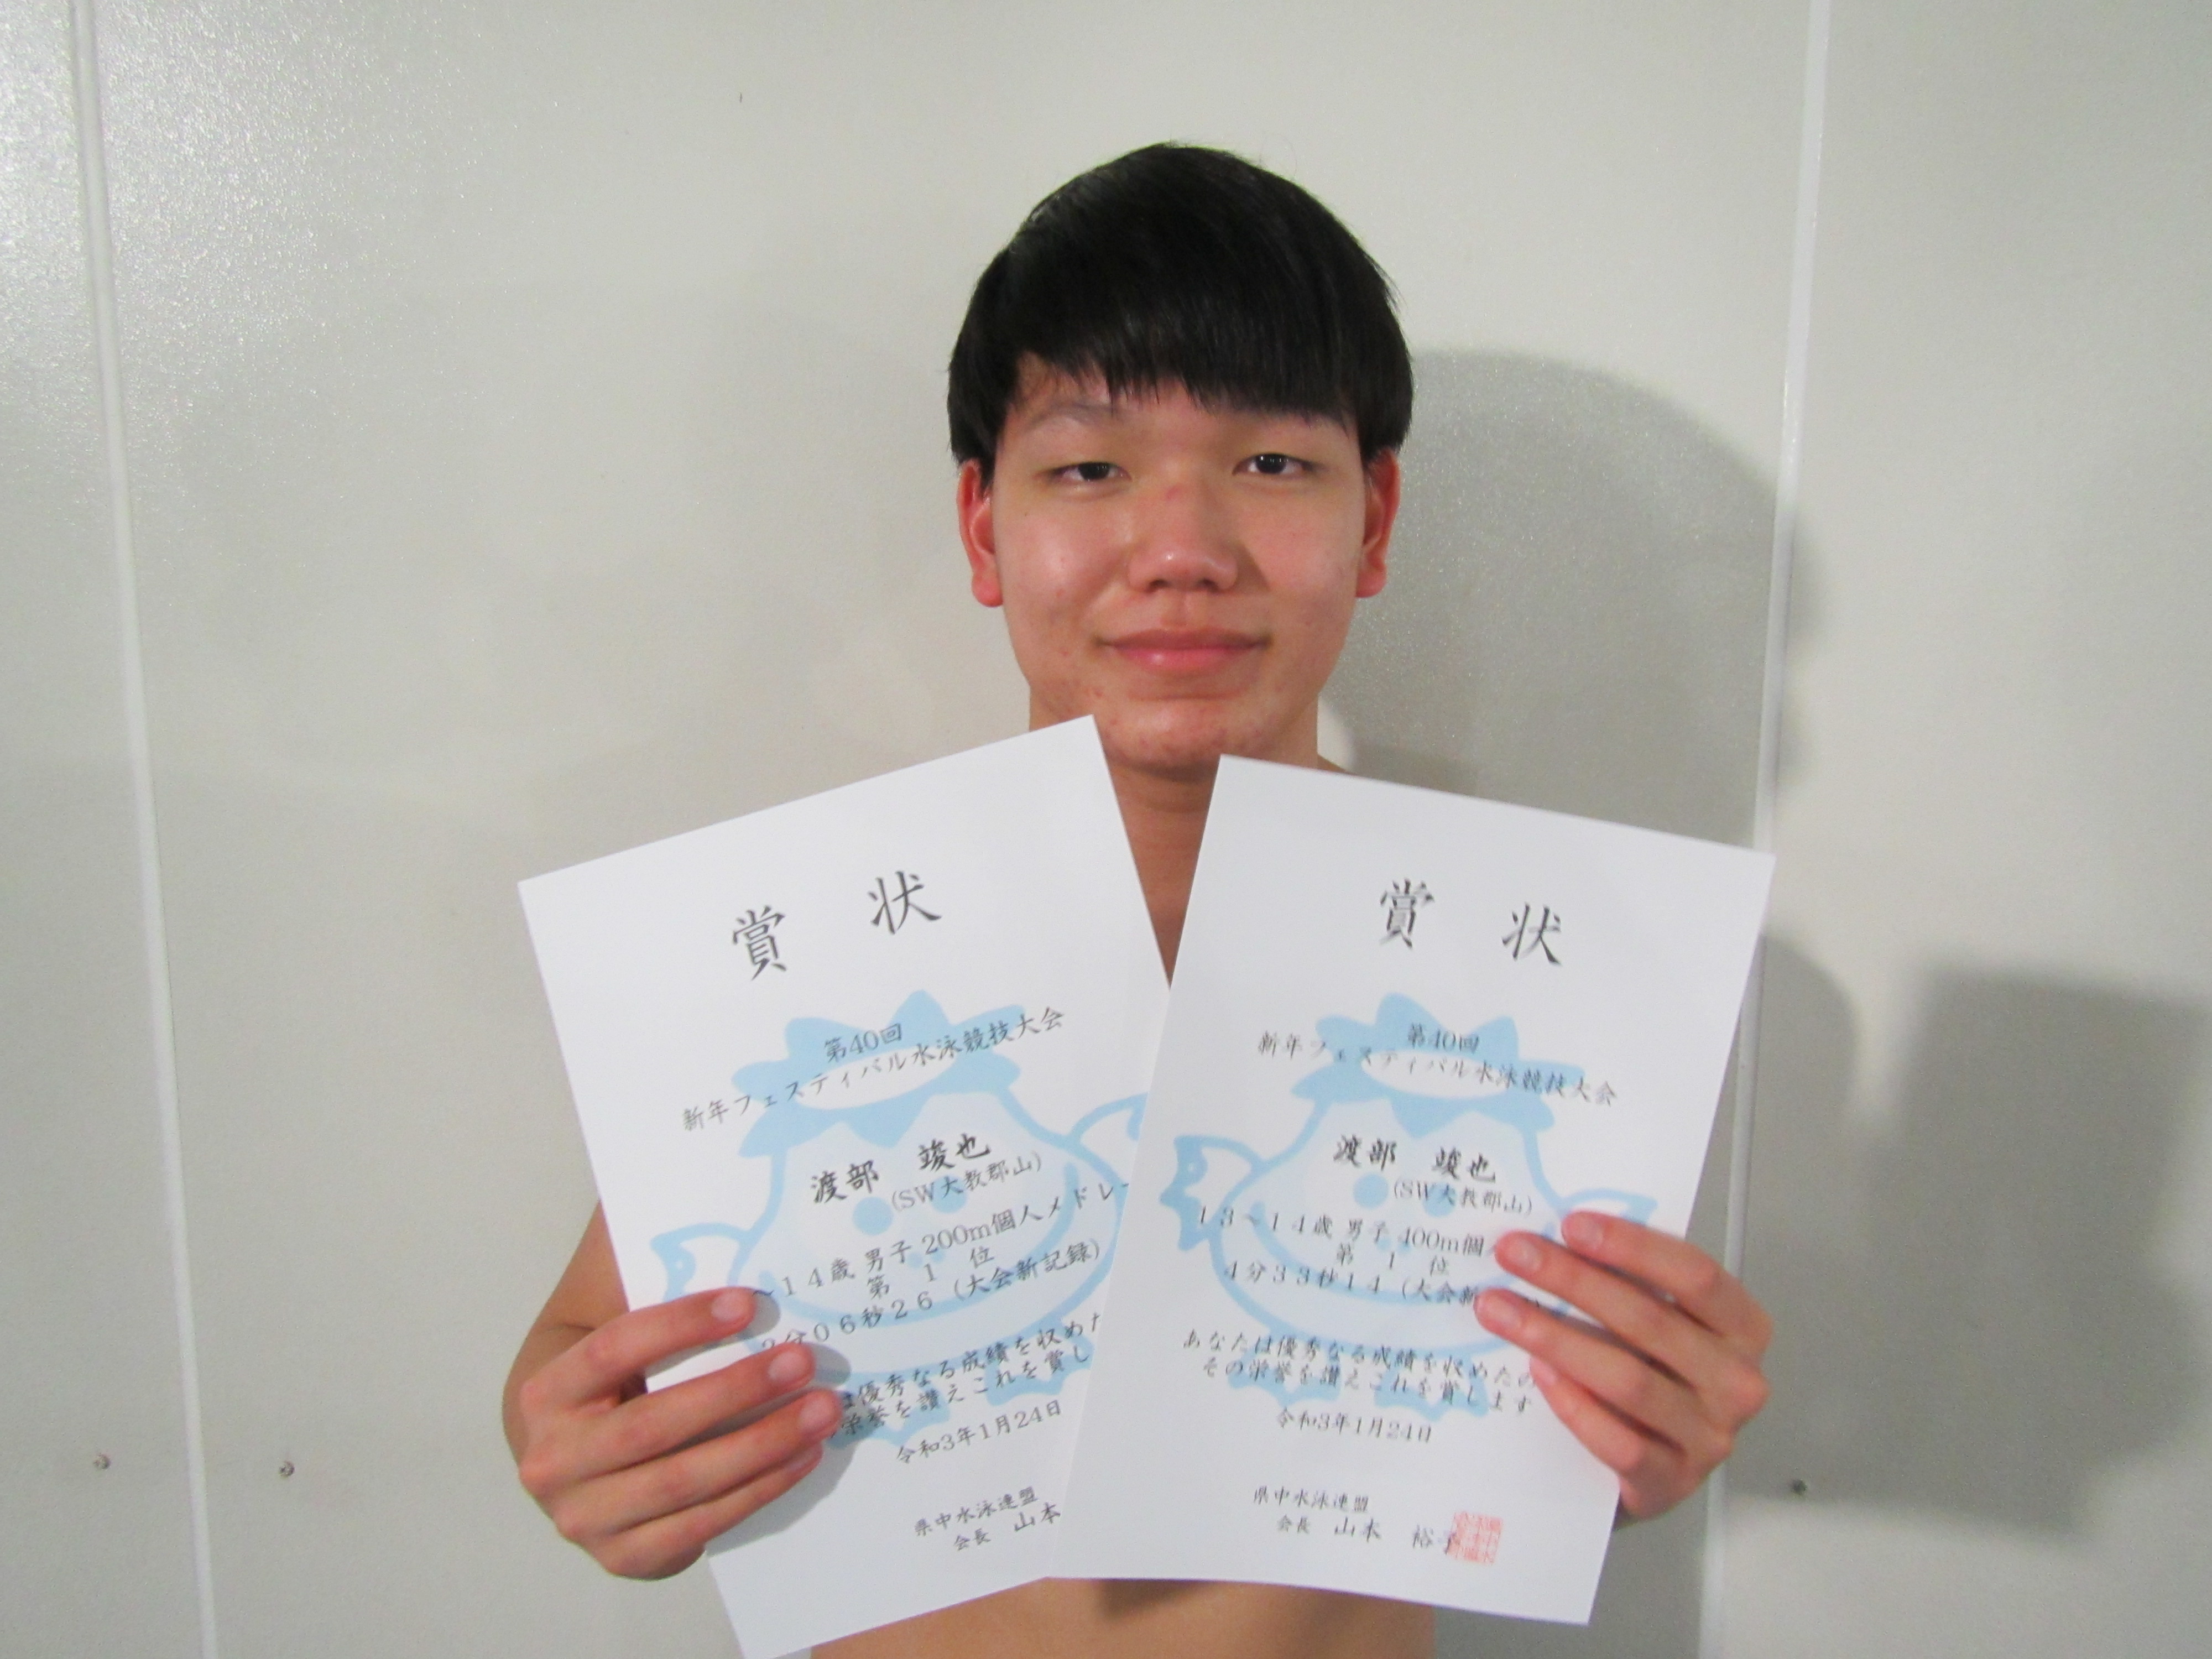 賞 状
第40回
新年フェスティバル水泳競技大会
渡部 竣也
(SW大教郡山)
~14歳 男子 200m個人メドレー
第 1 位
2分06秒26 (大会新記録)
は優秀なる成績を収めた
栄誉を讃えこれを賞し
令和3年1月24日
県中水泳連盟
会長 山本
賞 状
第40回
新年フェスティバル水泳競技大会
渡部 竣也
(SW大教郡山)
13~14歳 男子 400m個
第 1 位
4分33秒14 (大会新
あなたは優秀なる成績を収めたの
その栄誉を讃えこれを賞します
令和3年1月24日
県中水泳連盟
会長 山本 裕子